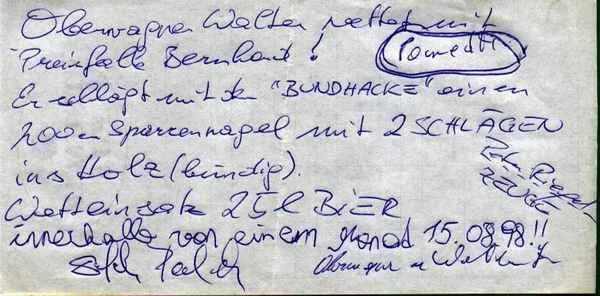 Oberwagner Walter wettet mit
Preinfalk Bernhard!
Er schlägt mit der "BUNDHACKE" einen
200er Sparrennagel mit 2 SCHLÄGEN
ins Holz (bündig).
ZEUGE
Wetteinsatz 25 l BIER
innerhalb von einem Monat 15.08.98!!